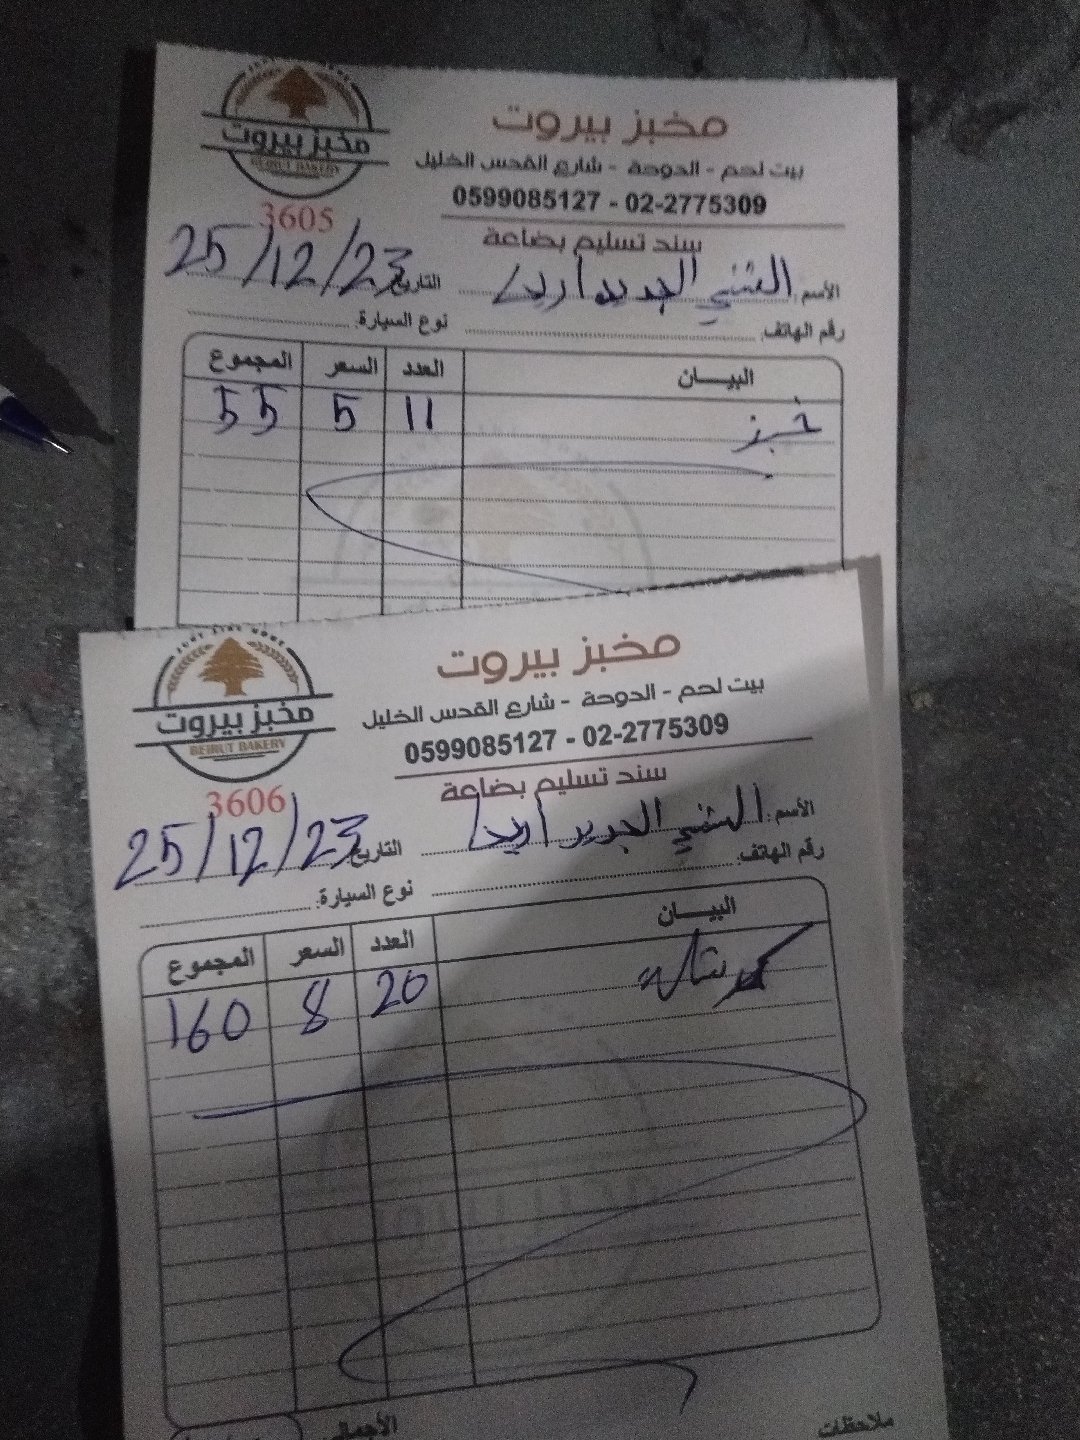 JUST LIKE HOME
مخبز بيروت
BEIRUT BAKERY
مخبز بيروت
بيت لحم - الدوحة - شارع القدس الخليل
0599085127 - 02-2775309
3605
سند تسليم بضاعة
الأسم: الجديد اريحا
التاريخ 25/12/23
رقم الهاتف:
نوع السيارة:
البيـــان العدد السعر المجموع
خبز 11 5 55
JUST LIKE HOME
مخبز بيروت
BEIRUT BAKERY
مخبز بيروت
بيت لحم - الدوحة - شارع القدس الخليل
0599085127 - 02-2775309
3606
سند تسليم بضاعة
الأسم: الجديد اريحا
التاريخ 25/12/23
رقم الهاتف:
نوع السيارة:
البيـــان العدد السعر المجموع
كرشاله 20 8 160
ملاحظات الأجمالي